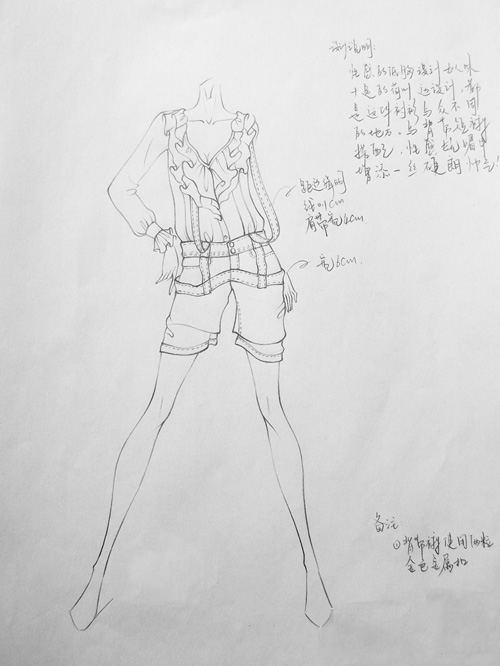 设计说明:
性感的低胸设计女人味
十足的荷叶边设计,都
是这件衬衫与众不同
的地方。与背带短裤
搭配,性感妩媚中
增添一丝硬朗帅气!
距边缘的
线叫1cm
肩带宽4cm
宽6cm.
备注:
①背带裤使用两粒
金色金属扣